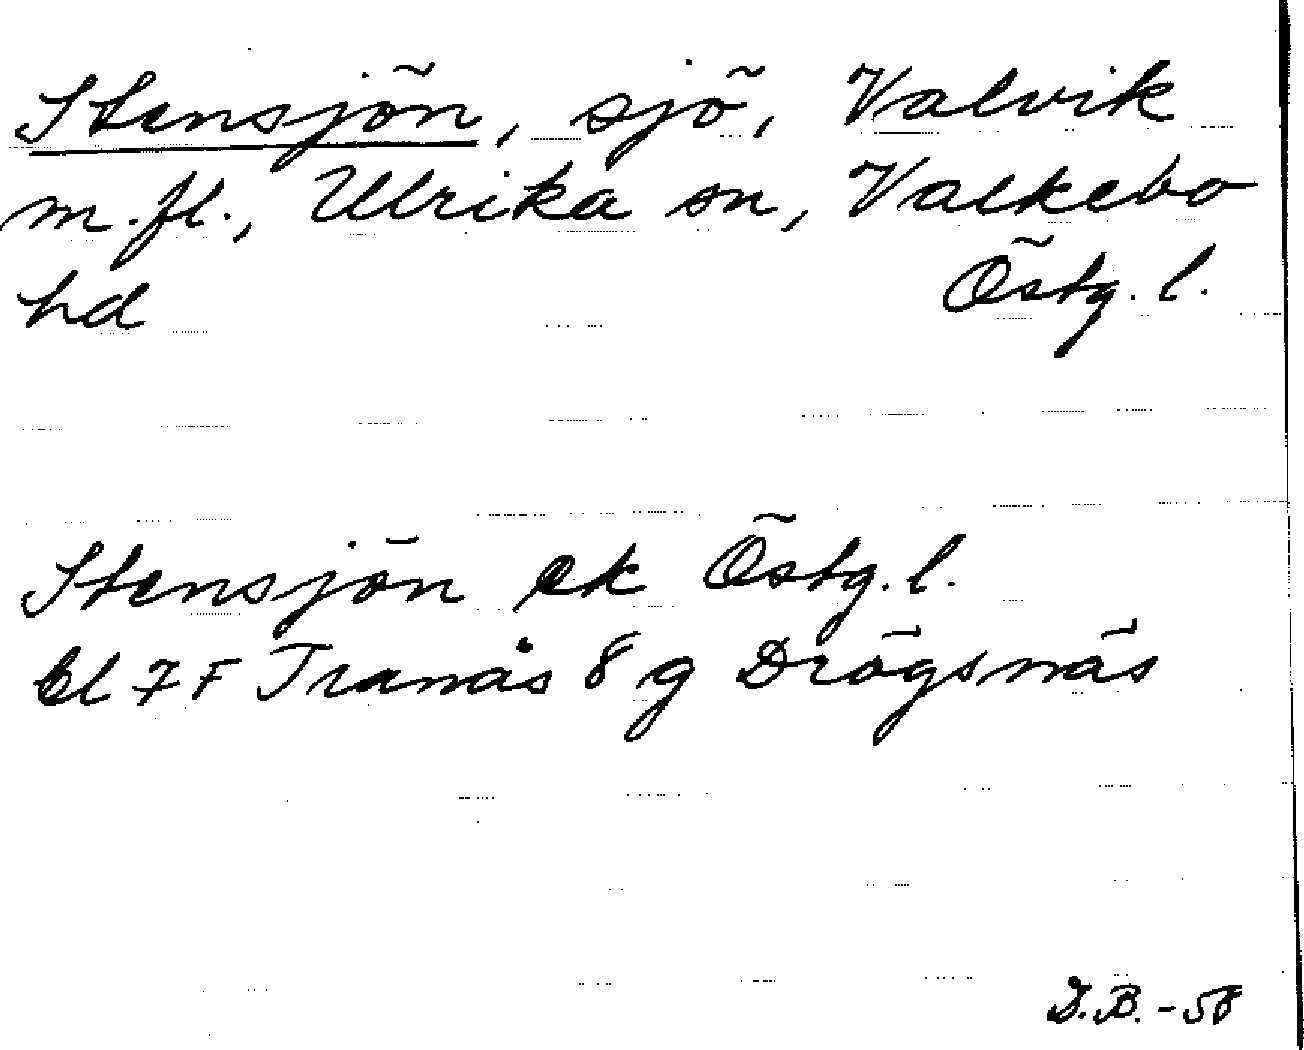 Stensjön, sjö, Valvik
m.fl., Ulrika sn, Valkebo
hd Östg. l.
Stensjön ek Östg. l.
bl 7F Tranås 8 g Drögsnäs
D.B. -58